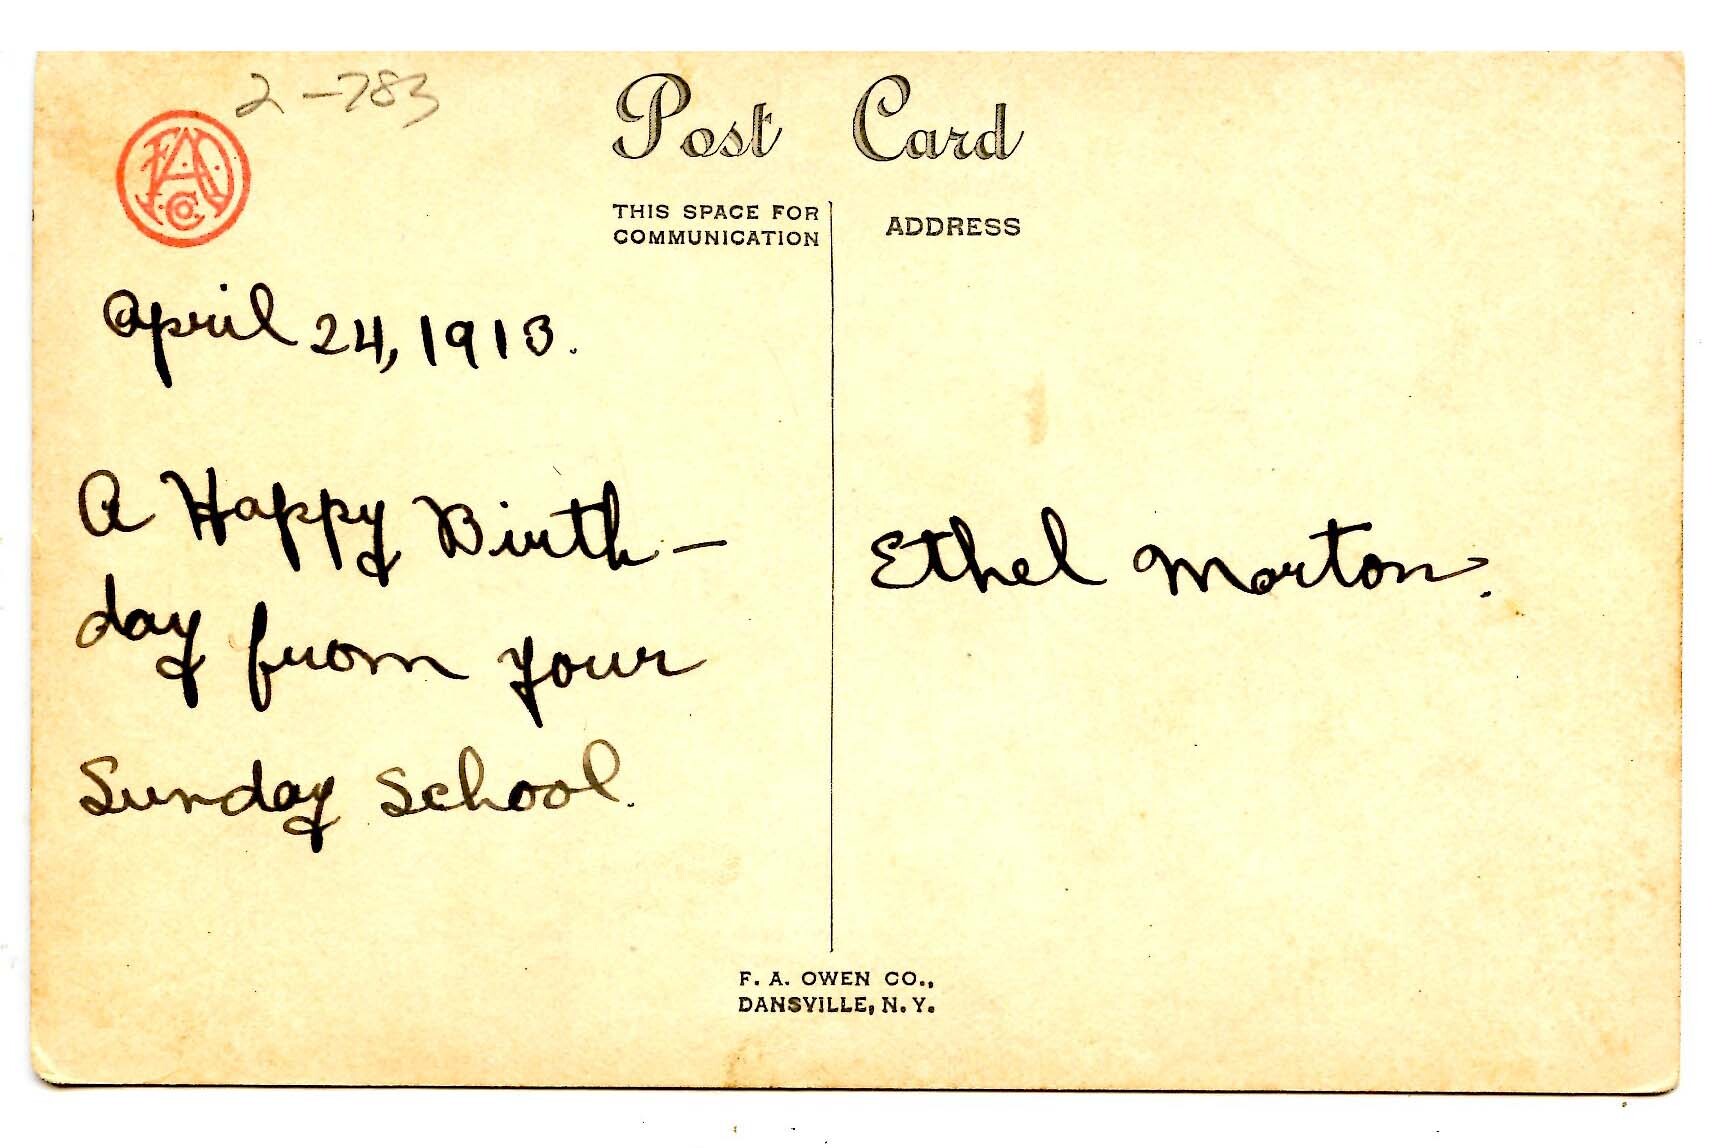 2-783
Post Card
THIS SPACE FOR
COMMUNICATION
ADDRESS
April 24, 1913.
A Happy Birth-
day from your
Sunday School.
Ethel Morton.
F. A. OWEN CO.,
DANSVILLE, N. Y.